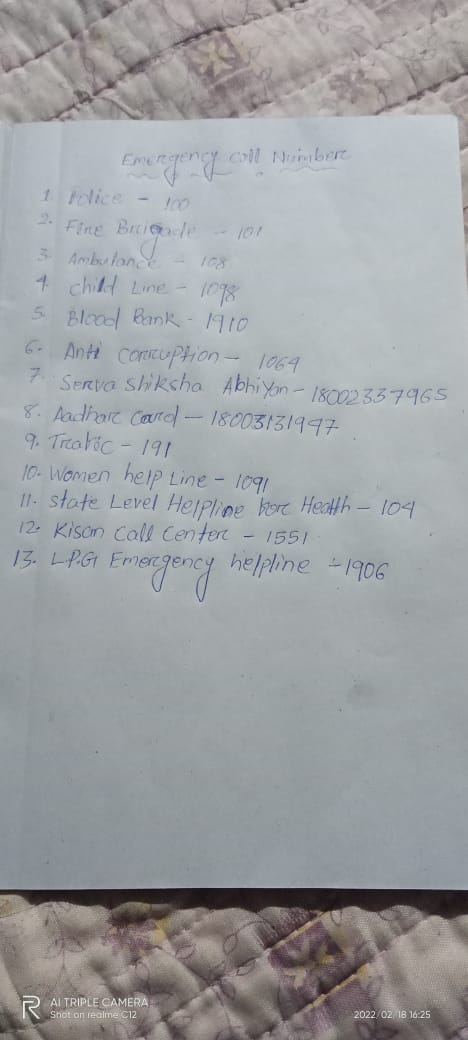 Emergency Call Number
1. Police - 100
2. Fire Brigade - 101
3. Ambulance - 108
4. Child Line - 1098
5. Blood Bank - 1910
6. Anti Corruption - 1064
7. Serva Shiksha Abhiyan - 18002337965
8. Aadhar Card - 18003131947
9. Trafic - 191
10. Women help Line - 1091
11. State Level Helpline for Health - 104
12. Kison Call Center - 1551
13. L.P.G Emergency helpline - 1906
R AI TRIPLE CAMERA
Shot on realme C12
2022/02/18 16:25